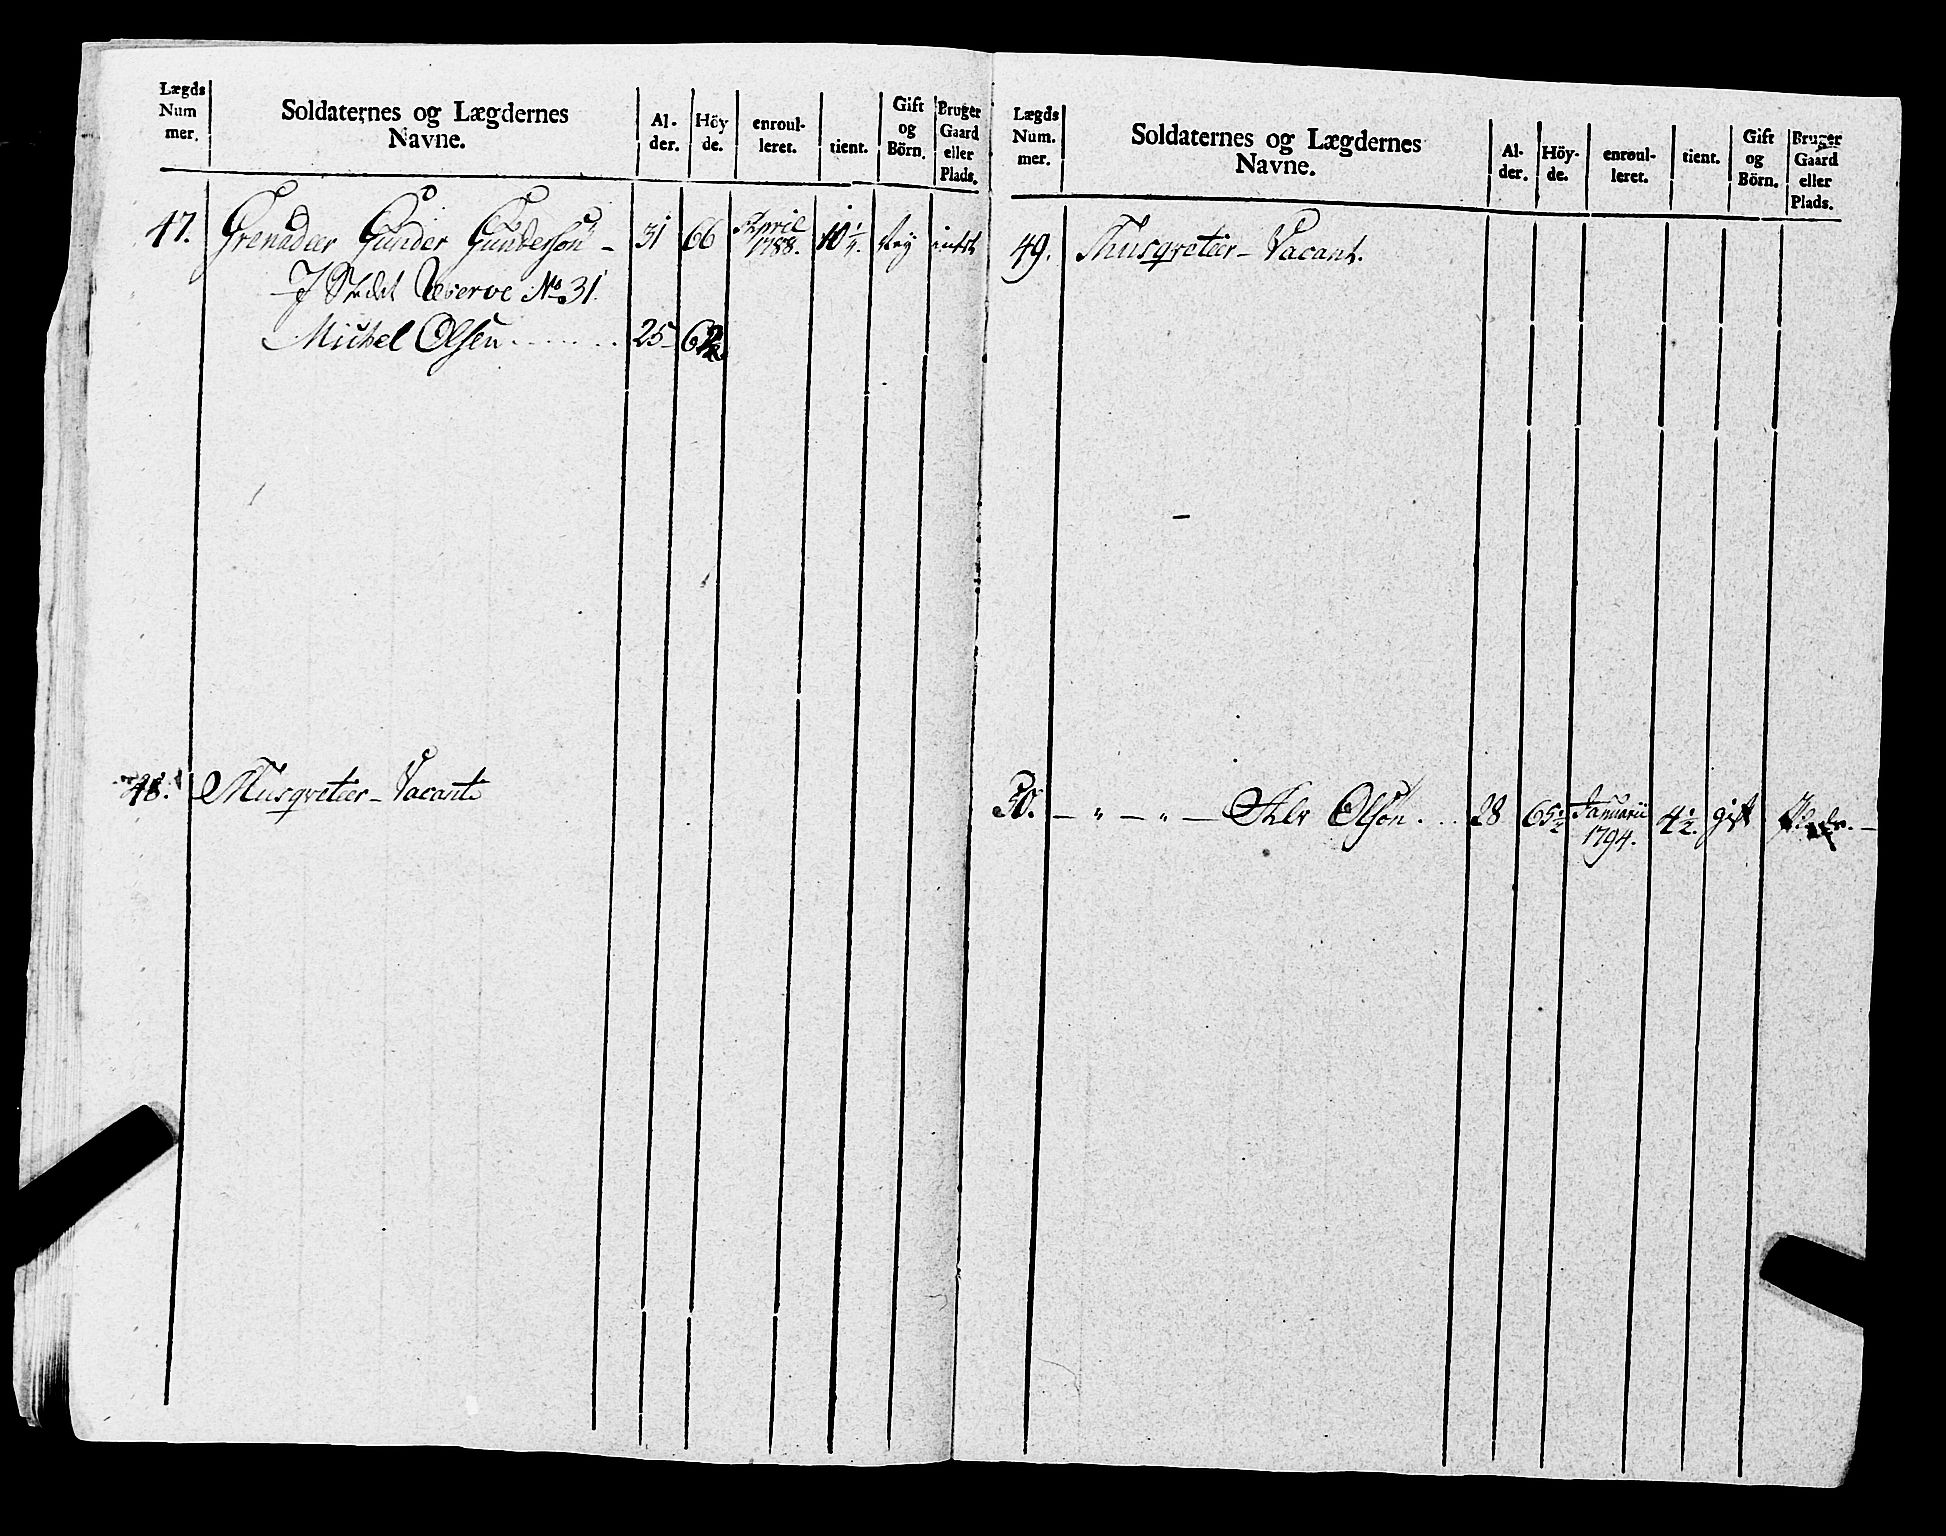 Lægds
Num
mer.
Soldaternes og Lægdernes
Navne.
Al-
der.
Höy
de.
enroul-
leret.
tient.
Gift
og
Börn.
Bruger
Gaard
eller
Plads.
47. Grenadeer Gunder Gunderson - 31 66 April 1788. 10 1/4. Ney intet
I Stedet Reserve No 31.
Michel Olsen . . . . . . . 25
48. Musqveteer - Vacant
Lægds
Num.
mer.
Soldaternes og Lægdernes
Navne.
Al-
der.
Höy-
de.
enroul-
leret.
tient.
Gift
og
Börn.
Bruger
Gaard
eller
Plads.
49. Musqveteer - Vacant.
50. — " — " — Olson. . . 28 65 1/2 Januarii 1794. 4 1/2. gift Plads. —